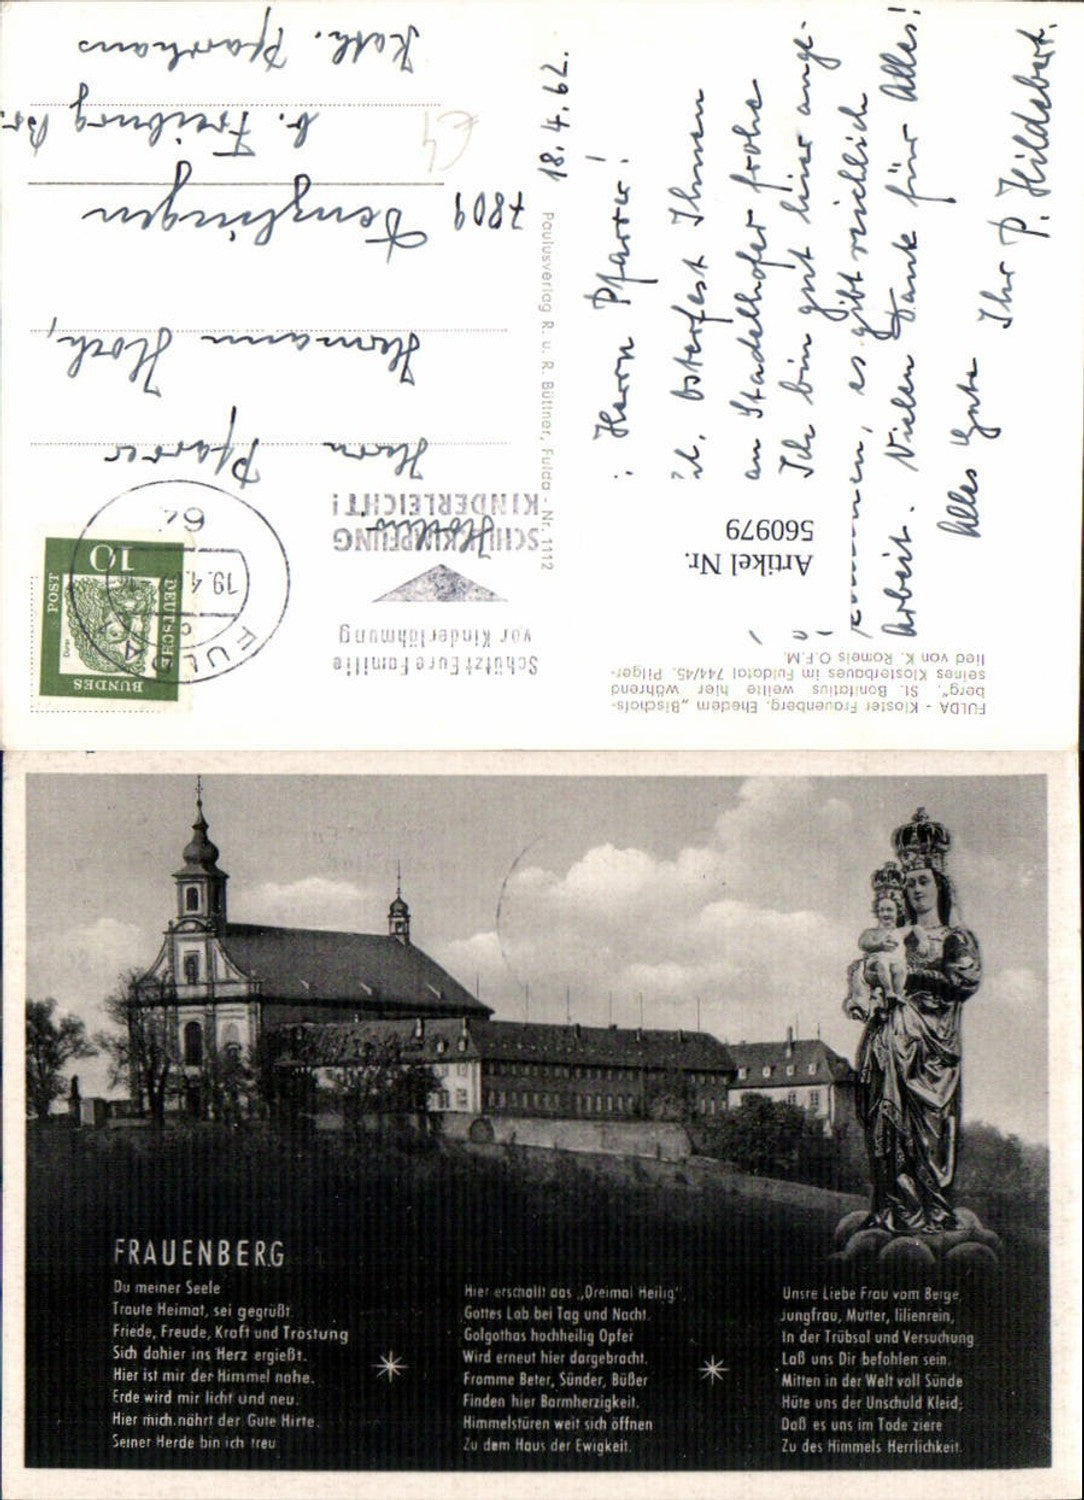 FULDA - Kloster Frauenberg. Ehedem „Bischofs-
berg". St. Bonifatius weilte hier während
seines Klosterbaues im Fuldatal 744/45. Pilger-
lied von K. Romeis O.F.M.
Artikel Nr.
560979
18.4.62.
Herrn Pfarrer!
Osterfest Ihnen
am Stadelhofer frohe
Ich bin gut hier ange-
kommen, es gibt reichlich
Arbeit. Vielen Dank für Alles!
Alles Gute
Ihr P. Hildebert.
Paulusverlag R. u. R. Büttner, Fulda - Nr. 1112
Schützt Eure Familie
vor Kinderlähmung
SCHLUCKIMPFUNG
KINDERLEICHT!
FULDA
19.4.
62
DEUTSCHE
BUNDES
POST
10
Dürer
Herrn Pfarrer
Hermann Hoch,
7809 Denzlingen
b. Freiburg Br.
Kath. Pfarrhaus
FRAUENBERG
Du meiner Seele
Traute Heimat, sei gegrüßt.
Friede, Freude, Kraft und Tröstung
Sich dahier ins Herz ergießt.
Hier ist mir der Himmel nahe.
Erde wird mir licht und neu.
Hier mich nährt der Gute Hirte.
Seiner Herde bin ich treu
Hier erschallt das „Dreimal Heilig",
Gottes Lob bei Tag und Nacht.
Golgothas hochheilig Opfer
Wird erneut hier dargebracht.
Fromme Beter, Sünder, Büßer
Finden hier Barmherzigkeit.
Himmelstüren weit sich öffnen
Zu dem Haus der Ewigkeit.
Unsre Liebe Frau vom Berge,
Jungfrau, Mutter, lilienrein,
In der Trübsal und Versuchung
Laß uns Dir befohlen sein.
Mitten in der Welt voll Sünde
Hüte uns der Unschuld Kleid;
Daß es uns im Tode ziere
Zu des Himmels Herrlichkeit.